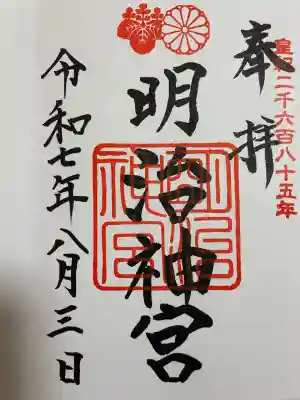 皇紀二千六百八十五年
奉拝
明治神宮
明治神宮
令和七年八月三日